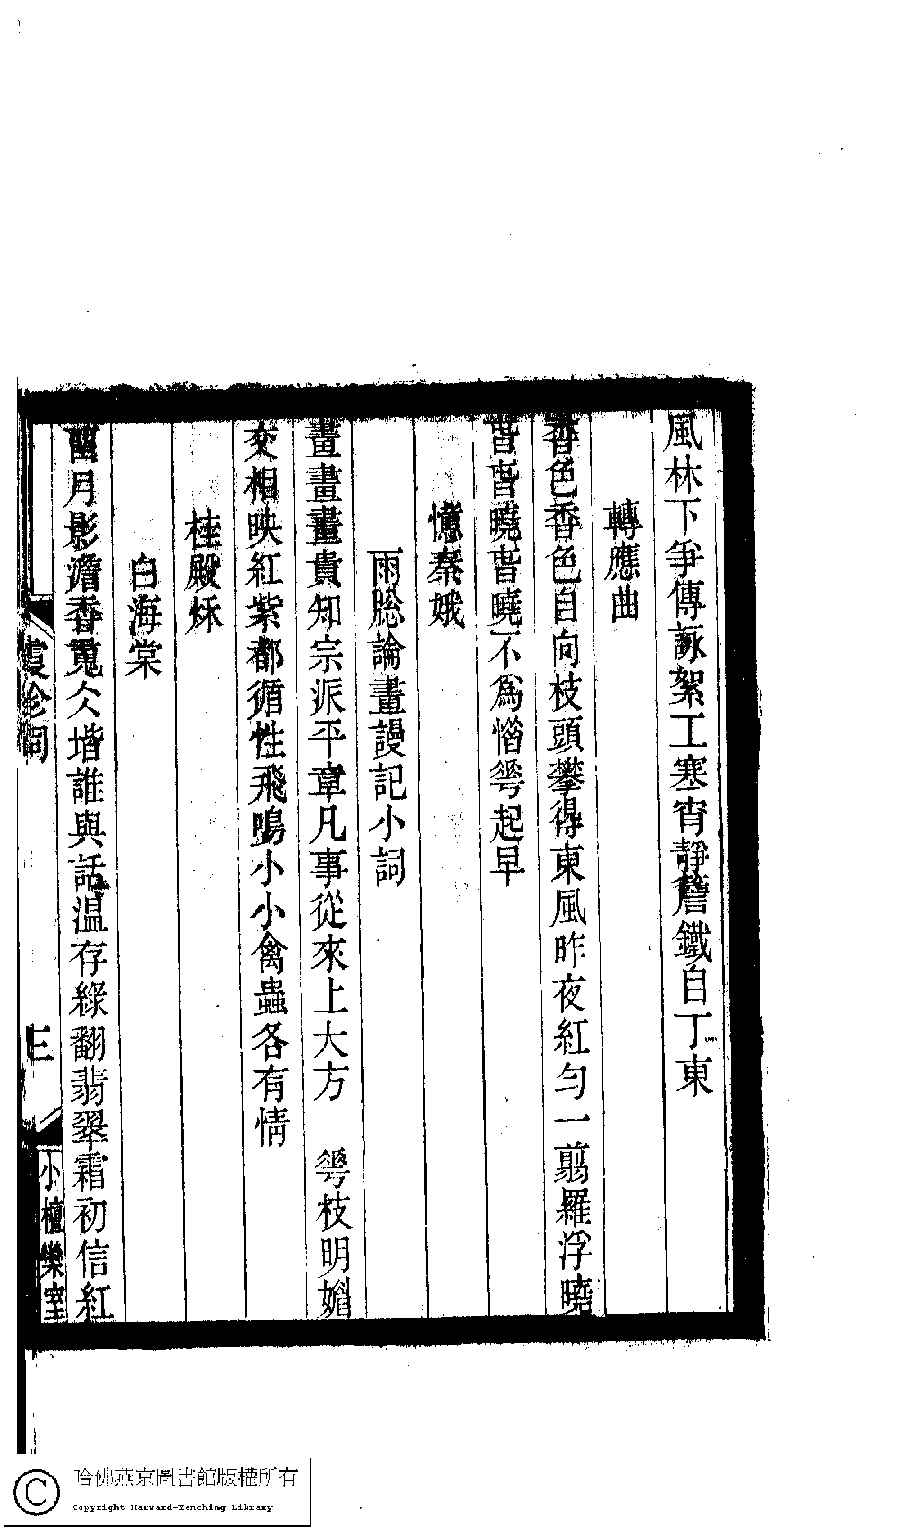 風林下爭傳詠絮工寒宵靜簷鐵自丁東
轉應曲
香色香色自向枝頭攀得東風昨夜紅勻一翦羅浮曉
旹旹曉旹曉不為惜𠌶起早
憶秦娥
雨牕論畫謾記小詞
畫畫畫貴知宗派平章凡事從來上大方　𠌶枝明媚
交相映紅紫都循性飛鳴小小禽蟲各有情
桂殿秌
白海棠
留月影澹香䰟仌堦誰與話温存綠翻翡翠霜初信紅
霞珍詞
三
小檀欒室
哈佛燕京圖書館版權所有
Copyright Harvard-Yenching Library